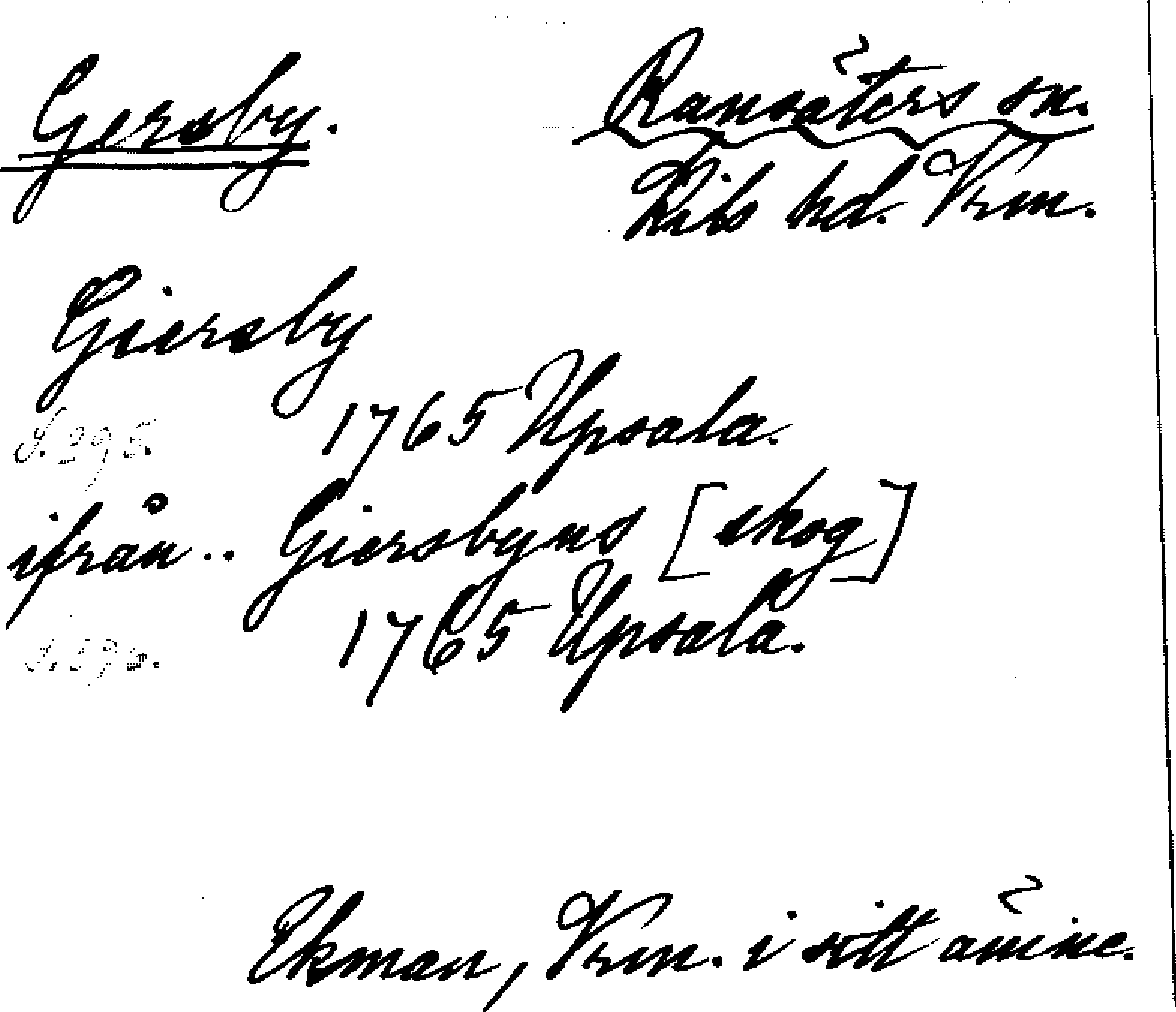 Gersby. Ransäters sn.
Kils hd. Vrm.
Giersby
S. 295. 1765 Upsala.
ifrån.. Giersbyns [skog]
1765 Upsala.
Ekman, Vrm. i sitt ämne.